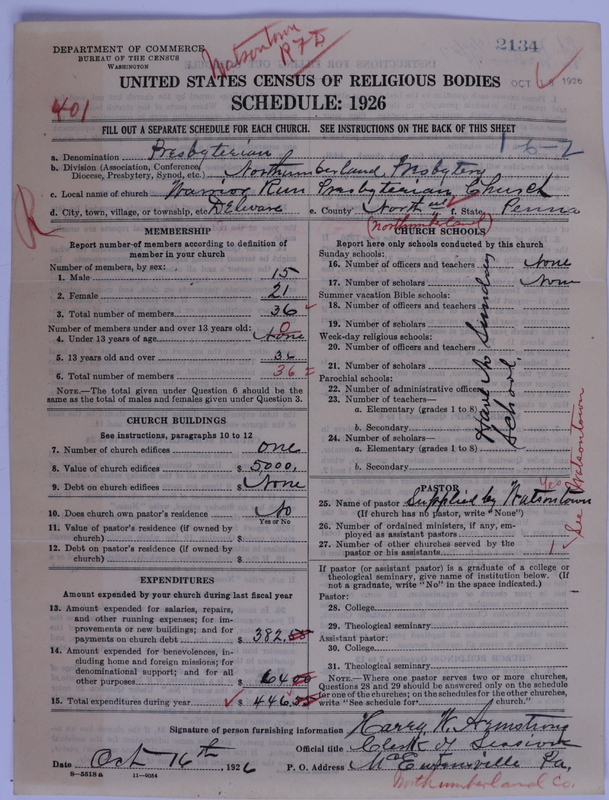 DEPARTMENT OF COMMERCE
BUREAU OF THE CENSUS
WASHINGTON
Watsontown
RFD
2134
OCT 1926
UNITED STATES CENSUS OF RELIGIOUS BODIES
SCHEDULE: 1926
401
FILL OUT A SEPARATE SCHEDULE FOR EACH CHURCH. SEE INSTRUCTIONS ON THE BACK OF THIS SHEET
1-6-2
a. Denomination Presbyterian
b. Division (Association, Conference, Diocese, Presbytery, Synod, etc.) Northumberland Presbytery
c. Local name of church Warrior Run Presbyterian Church
d. City, town, village, or township, etc. DElware e. County North f. State Penna
(Northumberland)
R
MEMBERSHIP
Report number of members according to definition of
member in your church
Number of members, by sex:
1. Male 15
2. Female 21
3. Total number of members 36
Number of members under and over 13 years old: 0
4. Under 13 years of age None
5. 13 years old and over 36
6. Total number of members 36 =
NOTE.—The total given under Question 6 should be
same as the total of males and females given under Question 3.
CHURCH BUILDINGS
See instructions, paragraphs 10 to 12
7. Number of church edifices one
8. Value of church edifices $ 5000.
9. Debt on church edifices $ None
10. Does church own pastor's residence? No
Yes or No
11. Value of pastor's residence (if owned by
church) $
12. Debt on pastor's residence (if owned by
church) $
EXPENDITURES
Amount expended by your church during last fiscal year
13. Amount expended for salaries, repairs,
and other running expenses; for im-
provements or new buildings; and for
payments on church debt $ 382.
14. Amount expended for benevolences, in-
cluding home and foreign missions; for
denominational support; and for all
other purposes $ 64
15. Total expenditures during year $ 446
CHURCH SCHOOLS
Report here only schools conducted by this church
Sunday schools:
16. Number of officers and teachers None
17. Number of scholars None
Summer vacation Bible schools:
18. Number of officers and teachers
19. Number of scholars
Week-day religious schools:
20. Number of officers and teachers
21. Number of scholars
Parochial schools:
22. Number of administrative officers
23. Number of teachers—
a. Elementary (grades 1 to 8)
b. Secondary
24. Number of scholars—
a. Elementary (grades 1 to 8)
b. Secondary
Have No Sunday
School.
PASTOR
Yes
25. Name of pastor Supplied by Watsontown
(If church has no pastor, write "None")
26. Number of ordained ministers, if any, em-
ployed as assistant pastors
27. Number of other churches served by the
pastor or his assistants 1
See Watsontown
If pastor (or assistant pastor) is a graduate of a college or
theological seminary, give name of institution below. (If
not a graduate, write "No" in the space indicated.)
Pastor:
28. College
29. Theological seminary
Assistant pastor:
30. College
31. Theological seminary
NOTE.—Where one pastor serves two or more churches,
Questions 28 and 29 should be answered only on the schedule
for one of the churches; on the schedules for the other churches,
write "See schedule for church."
Signature of person furnishing information Harry W. Armstrong
Official title Clerk of Session
Date Oct 16th, 1926 P. O. Address McEwensville Pa,
8—5518 a 11—9054
Northumberland Co.